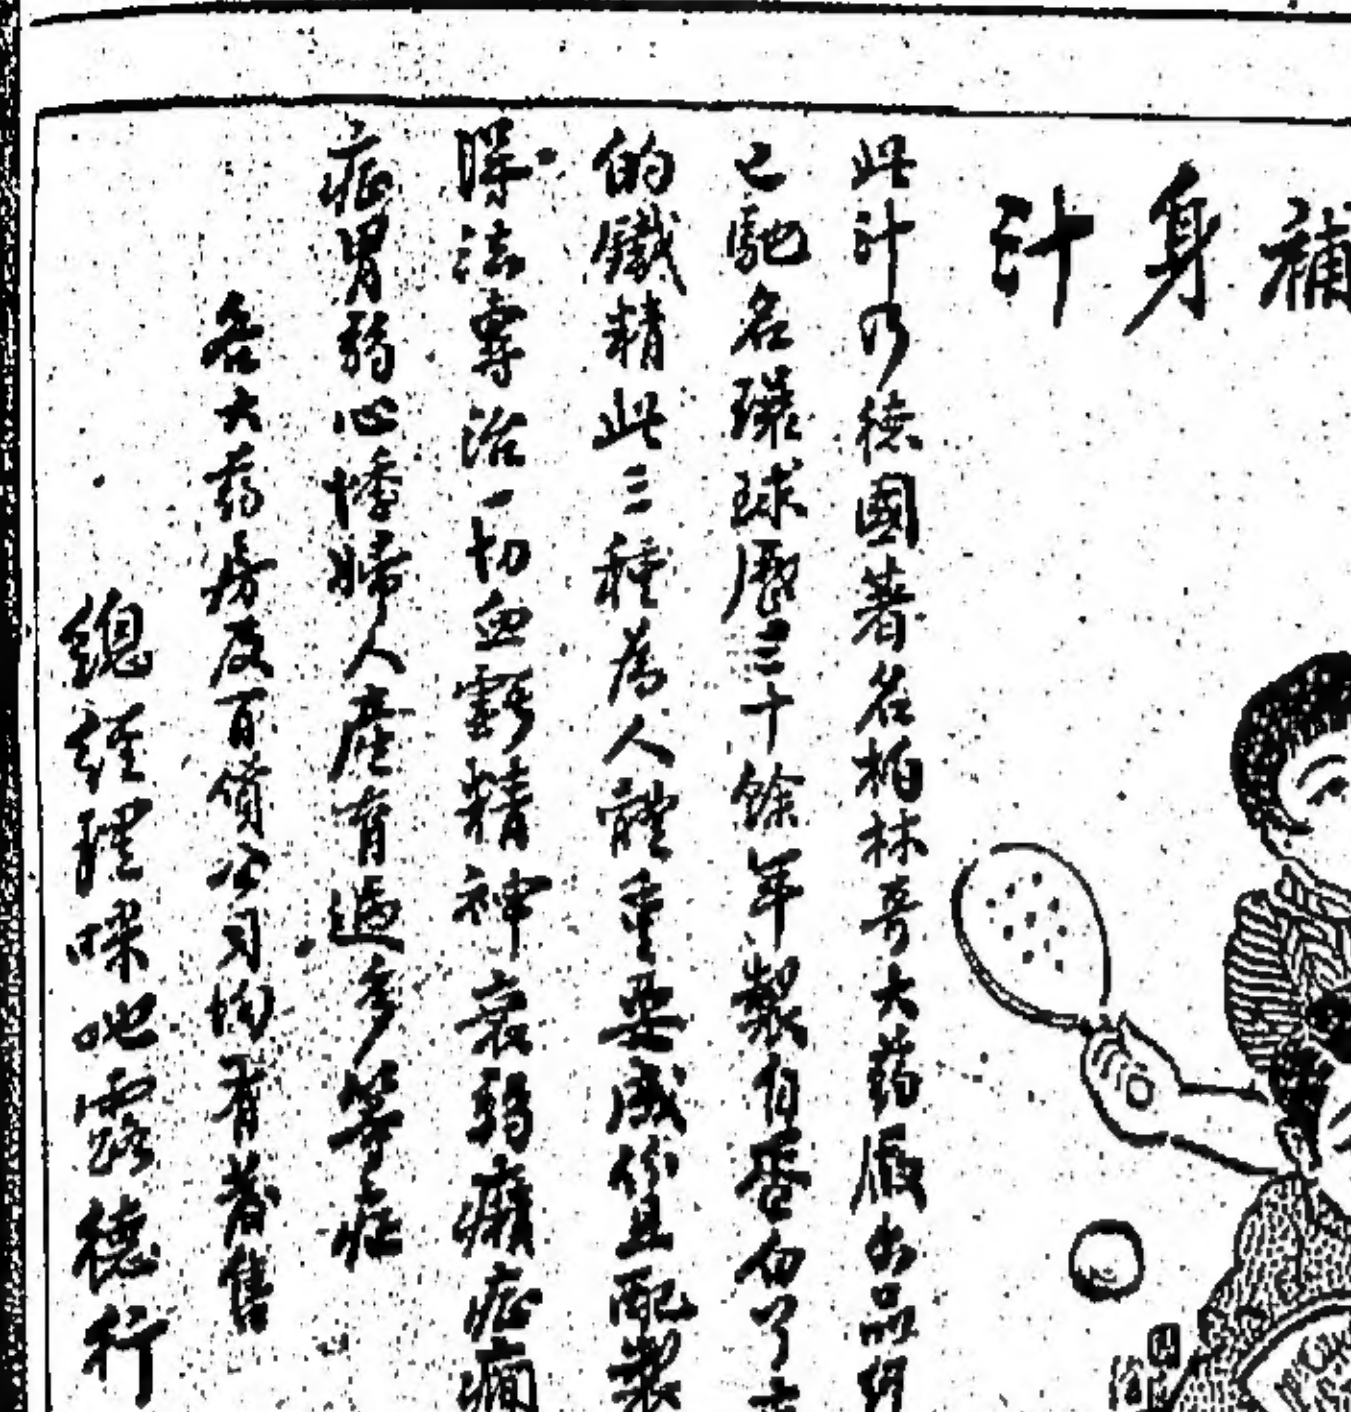 補身汁
此汁乃德國著名柏林哥大药厰出品經
已馳名環球歷三十餘年製自蛋白
的鐵精此三種為人體重要成份且配製
法專治一切血虧精神衰弱癱症
症胃弱心悸婦人產育過多等症
各大药房及百貨公司均有蓄售
總經理咪吔露德行